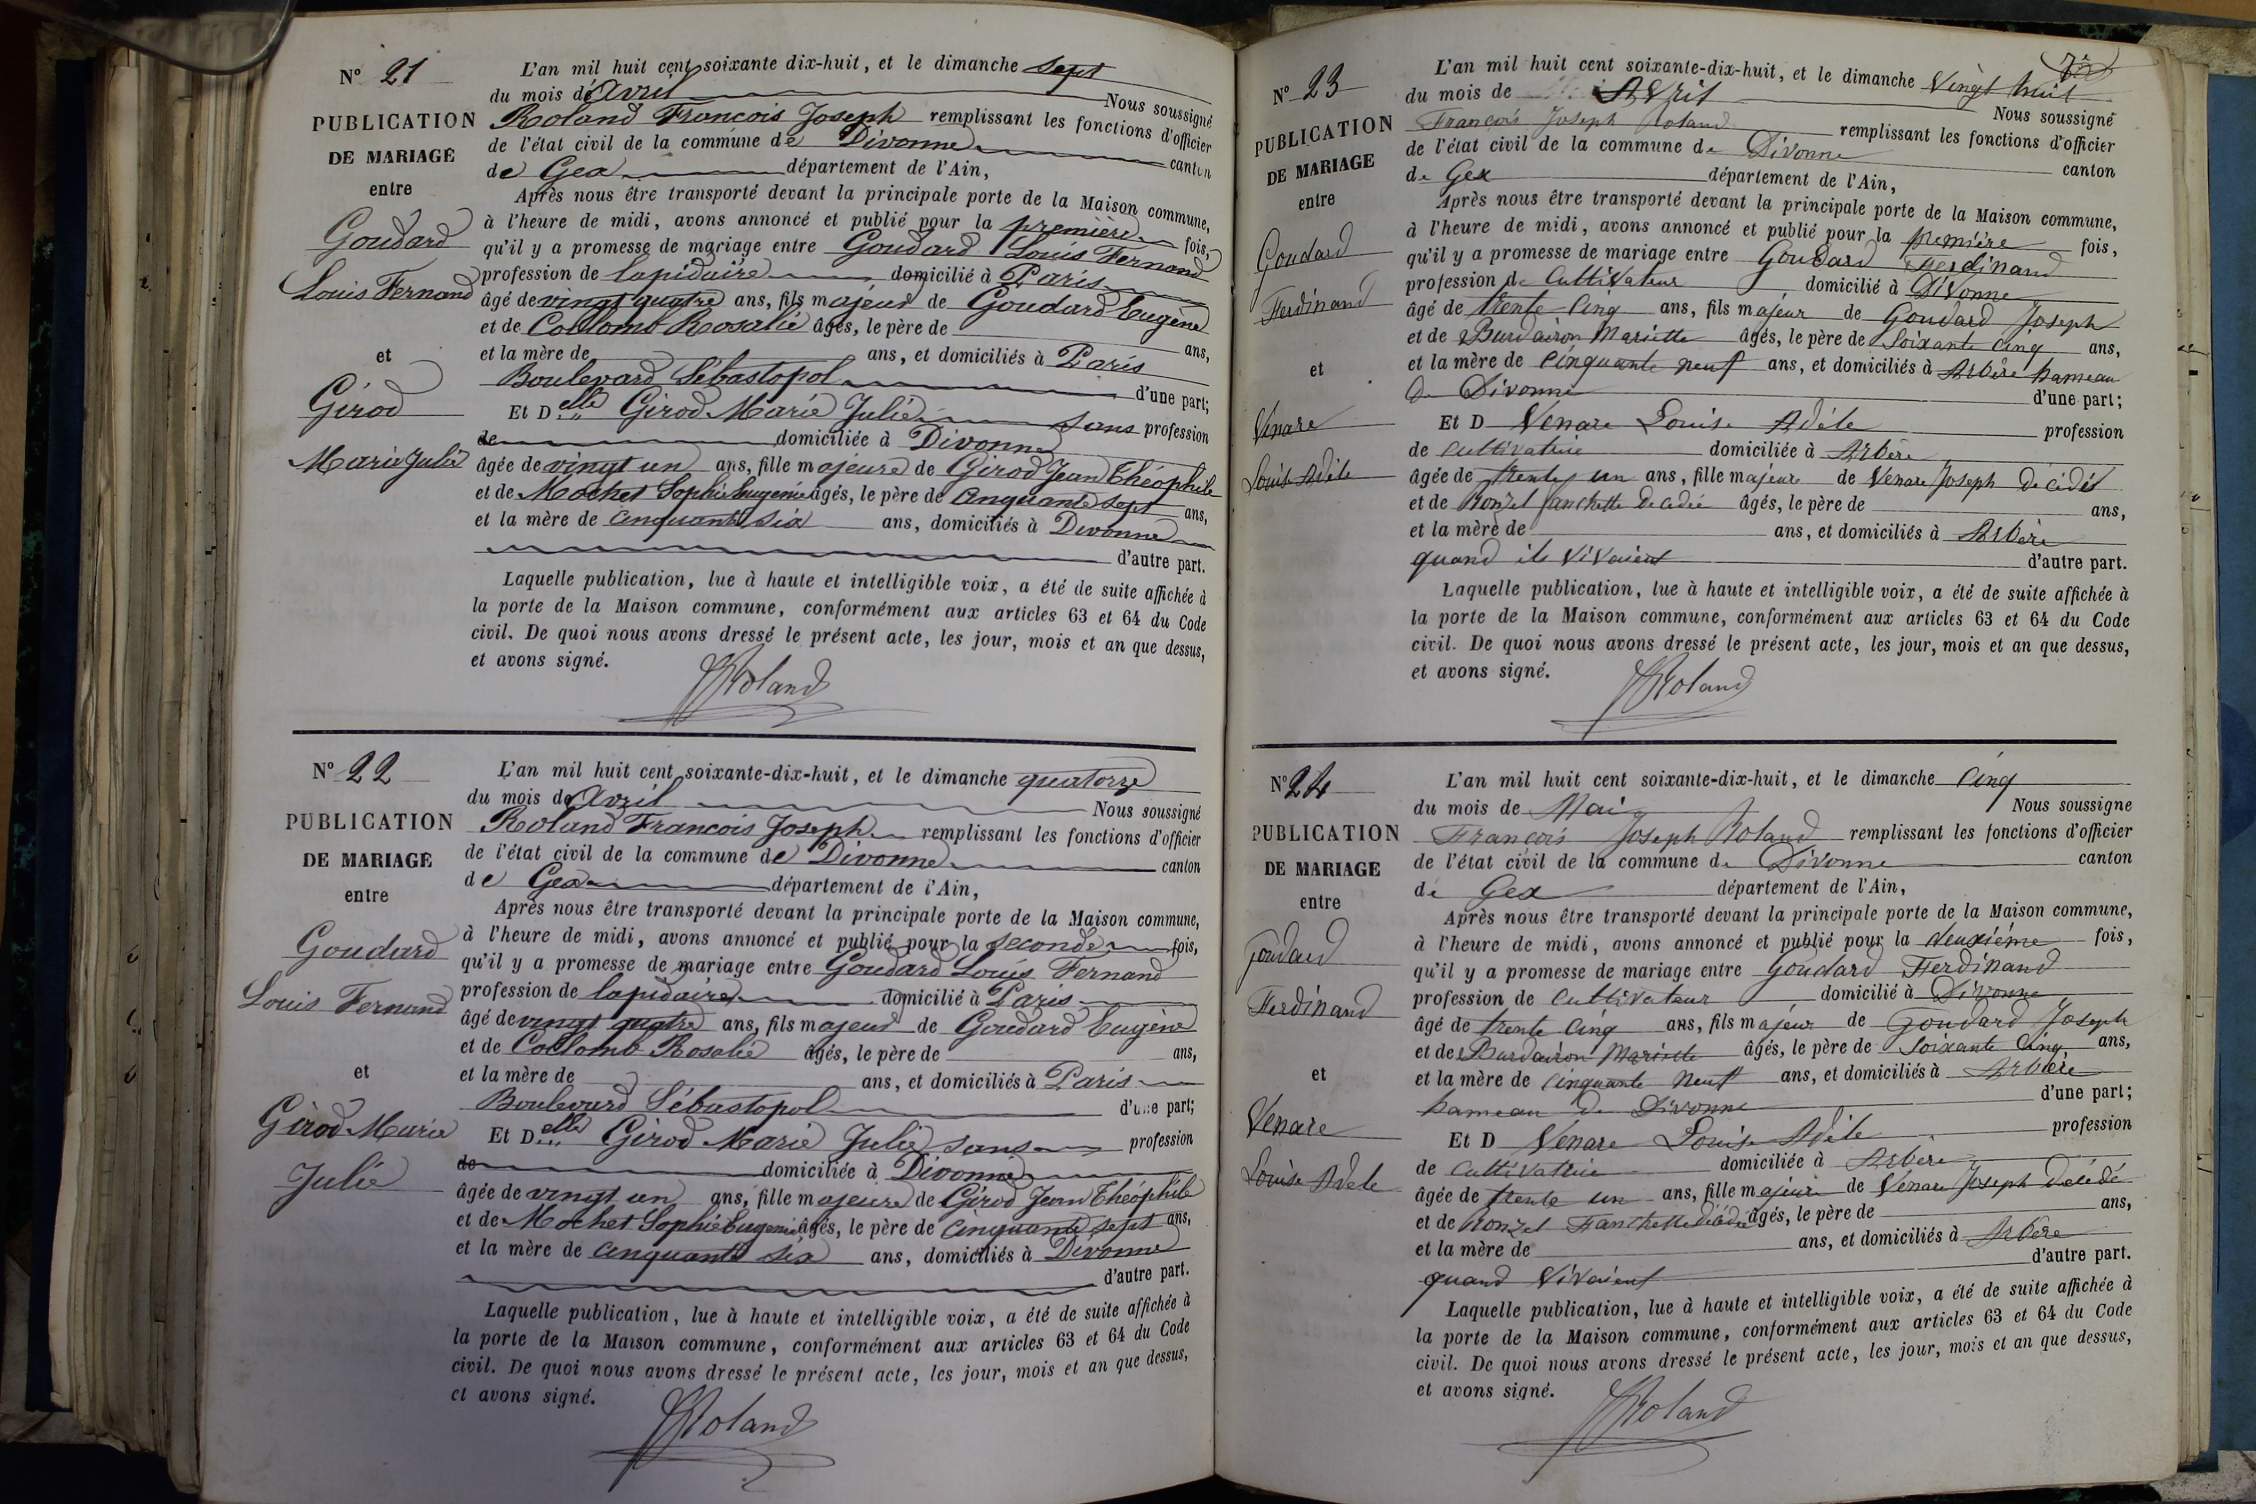 N° 21
PUBLICATION
DE MARIAGE
entre
Goudard
Louis Fernand
et
Girod
Marie Julie
L'an mil huit cent soixante dix-huit, et le dimanche sept
du mois de Avril Nous soussigné
Roland Francois Joseph remplissant les fonctions d'officier
de l'état civil de la commune de Divonne canton
de Gex département de l'Ain,
Après nous être transporté devant la principale porte de la Maison commune,
à l'heure de midi, avons annoncé et publié pour la première fois,
qu'il y a promesse de mariage entre Goudard Louis Fernand
profession de lapidaire domicilié à Paris
âgé de vingt quatre ans, fils majeur de Goudard Eugène
et de Collomb Rosalie âgés, le père de ans,
et la mère de ans, et domiciliés à Paris
Boulevard Sébastopol d'une part;
Et Delle Girod Marie Julie sans profession
de domiciliée à Divonne
âgée de vingt un ans, fille majeure de Girod Jean Théophile
et de Mochet Sophie Eugenie âgés, le père de cinquante sept ans,
et la mère de cinquante six ans, domiciliés à Divonne
d'autre part.
Laquelle publication, lue à haute et intelligible voix, a été de suite affichée à
la porte de la Maison commune, conformément aux articles 63 et 64 du Code
civil. De quoi nous avons dressé le présent acte, les jour, mois et an que dessus,
et avons signé.
Roland
N° 22
PUBLICATION
DE MARIAGE
entre
Goudard
Louis Fernand
et
Girod Marie
Julie
L'an mil huit cent soixante-dix-huit, et le dimanche quatorze
du mois de Avril Nous soussigné
Roland Francois Joseph remplissant les fonctions d'officier
de l'état civil de la commune de Divonne canton
de Gex département de l'Ain,
Après nous être transporté devant la principale porte de la Maison commune,
à l'heure de midi, avons annoncé et publié pour la seconde fois,
qu'il y a promesse de mariage entre Goudard Louis Fernand
profession de lapidaire domicilié à Paris
âgé de vingt quatre ans, fils majeur de Goudard Eugène
et de Collomb Rosalie âgés, le père de ans,
et la mère de ans, et domiciliés à Paris
Boulevard Sébastopol d'une part;
Et Delle Girod Marie Julie sans profession
de domiciliée à Divonne
âgée de vingt un ans, fille majeure de Girod Jean Théophile
et de Mochet Sophie Eugenie âgés, le père de cinquante sept ans,
et la mère de cinquante six ans, domiciliés à Divonne
d'autre part.
Laquelle publication, lue à haute et intelligible voix, a été de suite affichée à
la porte de la Maison commune, conformément aux articles 63 et 64 du Code
civil. De quoi nous avons dressé le présent acte, les jour, mois et an que dessus,
et avons signé.
Roland
N° 23
PUBLICATION
DE MARIAGE
entre
Goudard
Ferdinand
et
Vénare
Louise Adèle
L'an mil huit cent soixante-dix-huit, et le dimanche Vingt huit
du mois de Avril Nous soussigné
François Joseph Roland remplissant les fonctions d'officier
de l'état civil de la commune de Divonne canton
de Gex département de l'Ain,
Après nous être transporté devant la principale porte de la Maison commune,
à l'heure de midi, avons annoncé et publié pour la première fois,
qu'il y a promesse de mariage entre Goudard Ferdinand
profession de Cultivateur domicilié à Divonne
âgé de trente cinq ans, fils majeur de Goudard Joseph
et de Burdairon Mariette âgés, le père de Soixante cinq ans,
et la mère de Cinquante neuf ans, et domiciliés à Arbère hameau
de Divonne d'une part;
Et D Vénare Louise Adèle profession
de cultivatrice domiciliée à Arbère
âgée de trente un ans, fille majeure de Vénare Joseph décédés
et de Ronzel fanchette décédée âgés, le père de ans,
et la mère de ans, et domiciliés à Arbère
quand ils vivaient d'autre part.
Laquelle publication, lue à haute et intelligible voix, a été de suite affichée à
la porte de la Maison commune, conformément aux articles 63 et 64 du Code
civil. De quoi nous avons dressé le présent acte, les jour, mois et an que dessus,
et avons signé.
Roland
N° 24
PUBLICATION
DE MARIAGE
entre
Goudard
Ferdinand
et
Venare
Louise Adèle
L'an mil huit cent soixante-dix-huit, et le dimanche Cinq
du mois de Mai Nous soussigné
François Joseph Roland remplissant les fonctions d'officier
de l'état civil de la commune de Divonne canton
de Gex département de l'Ain,
Après nous être transporté devant la principale porte de la Maison commune,
à l'heure de midi, avons annoncé et publié pour la deuxième fois,
qu'il y a promesse de mariage entre Goudard Ferdinand
profession de cultivateur domicilié à Divonne
âgé de trente cinq ans, fils majeur de Goudard Joseph
et de Burdairon Mariette âgés, le père de Soixante cinq ans,
et la mère de Cinquante neuf ans, et domiciliés à Arbère
hameau de Divonne d'une part;
Et D Vénare Louise Adèle profession
de cultivatrice domiciliée à Arbère
âgée de trente un ans, fille majeure de Vénare Joseph décédé
et de Ronzel Fanchette décédée âgés, le père de ans,
et la mère de ans, et domiciliés à Arbère
quand vivaient d'autre part.
Laquelle publication, lue à haute et intelligible voix, a été de suite affichée à
la porte de la Maison commune, conformément aux articles 63 et 64 du Code
civil. De quoi nous avons dressé le présent acte, les jour, mois et an que dessus,
et avons signé.
Roland